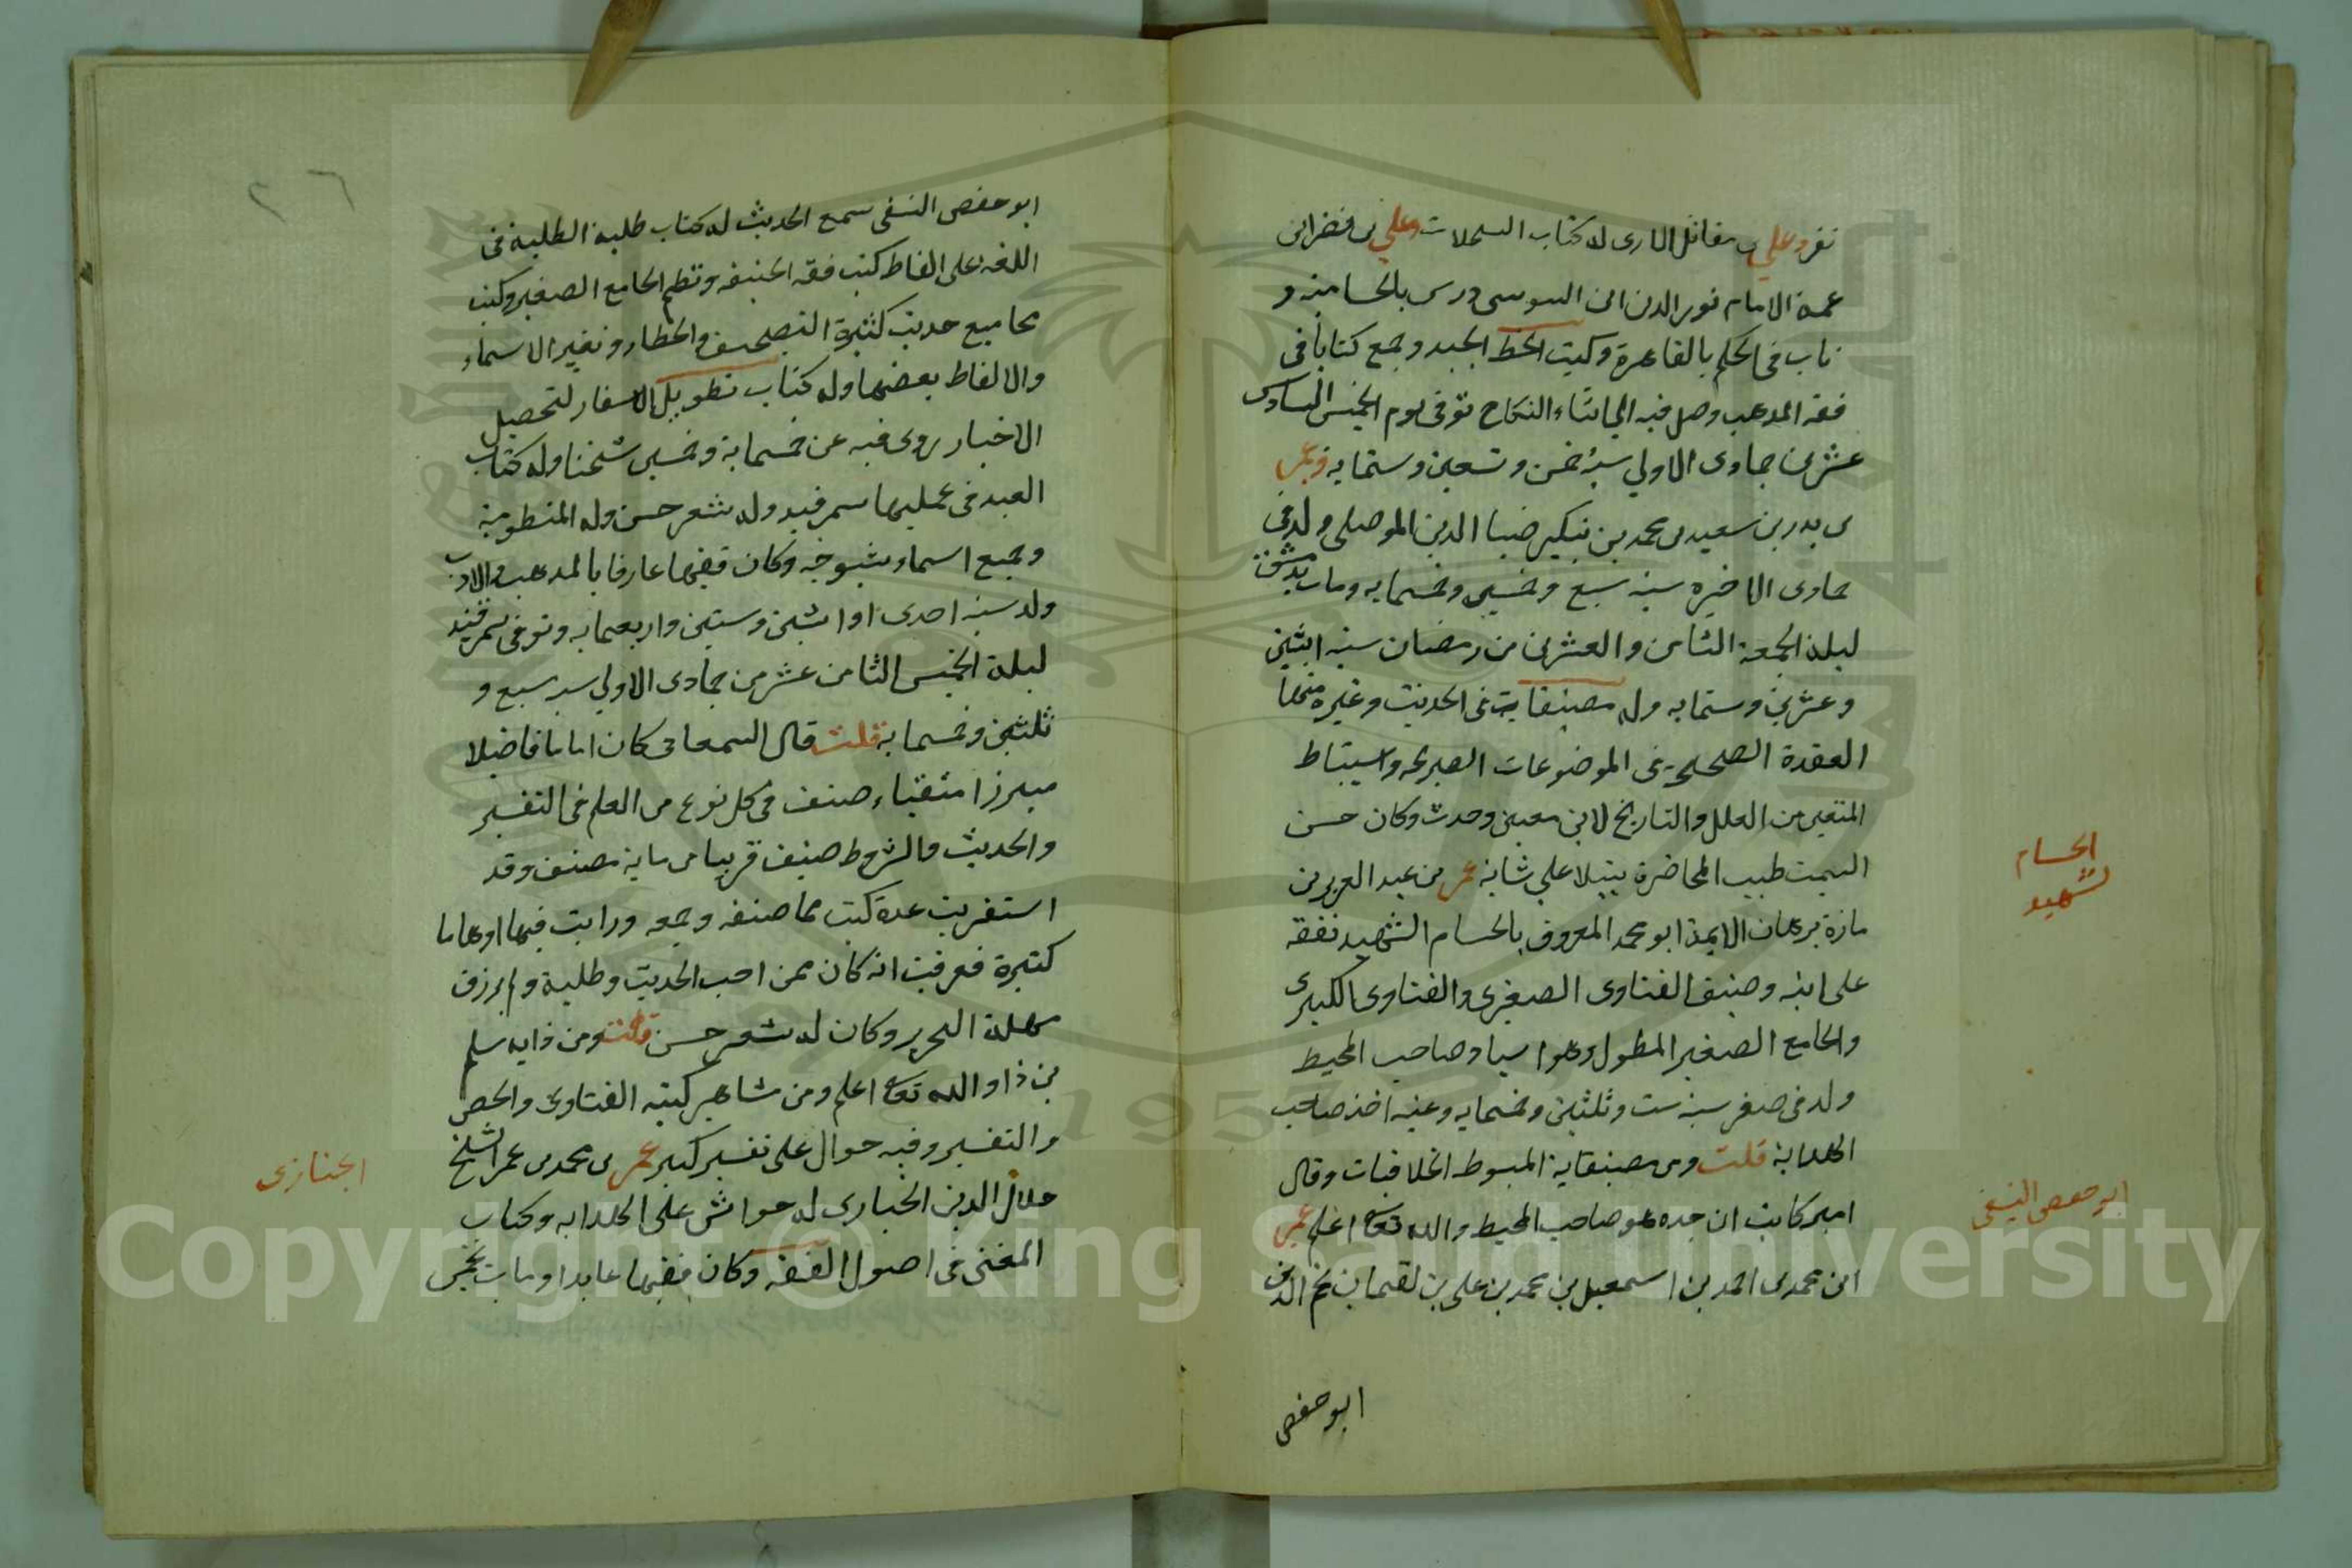 نفر وعلي بن مقاتل الرازى له كتاب السجلات وعلي بن نصر ابن
عمة الامام نور الدين ابن السوسى درس بالحسامية و
ناب فى الحكم بالقاهرة وكتب الخط الجيد وجمع كتابا فى
فقه المدهب وصل فيه الى اثناء النكاح توفى يوم الخميس السادس
عشر من جماوى الاولي سنة خمس وتسعين وستمايه وعمر
بن بدر بن سعيد بن محمد بن تنكير ضيا الدين الموصلى ولد فى
جماوى الاخيره سنه سبع وخمسين وخمسمايه ومات بدمشق
ليلة الجمعة الثامن والعشرين من رمضان سنه اثنين
وعشرين وستمايه وله مصنفات فى الحديث وغيره منها
العقدة الصحيحة فى الموضوعات الصريحة واستنباط
المتعين من العلل والتاريخ لابن معين وحدث وكان حسن
السمت طيب المحاضرة يتبلا علي شانه عمر بن عبد العزيز بن
مازة برهان الايمة ابو محمد المعروف بالحسام الشهيد تفقه
على ابيه وصنف الفتاوى الصغرى والفتاوى الكبرى
والجامع الصغير المطول وهو استاد صاحب المحيط
ولد فى صفر سنه ست وثلثين وخمسمايه وعنه اخذ صاحب
الهداية قلت ومن مصنفاته المبسوط الخلافيات وقال
امير كاتب ان جده هو صاحب المحيط والله تعالى اعلم عمر
ابن محمد بن احمد بن اسمعيل بن محمد بن علي بن لقمان نجم الدين
ابو حفص
الحسام
الشهيد
ابو حفص النسفى
٢٦
ابو حفص النسفى سمع الحديث له كتاب طلبة الطلبة فى
اللغه على الفاظ كتب فقه الحنيفه ونظم الجامع الصغير وكتب
مجاميع حديث كثيرة التصحيف والخطاء وتغيير الاسماء
والالفاظ بعضها وله كتاب تطويل الاسفار لتحصيل
الاخبار روى فيه عن خمسماية وخمسين شيخنا وله كتاب
العبد فى عمليها سمرقند وله شعر حسن وله المنظومة
وجمع اسماء شيوخه وكان فقيها عارفا بالمدهب والادب
ولد سنه احدى او اثنين وستين واربعمايه وتوفى بسمرقند
ليلة الخميس الثامن عشر من جمادى الاولي سنه سبع و
ثلثين وخمسماية قلت قال السمعانى كان اماما فاضلا
مبرزا متقنا صنف فى كل نوع من العلم فى التفسير
والحديث والشروط صنف قريبا من ماية مصنف وقد
استغربت عدة كتب مما صنفه وجمعه ورايت فيها اوهاما
كثيرة فعرفت انه كان ممن احب الحديث وطلبه ولم يرزق
مهلة التحرير وكان له شعر حسن قلت ومن ذا يسلم
من ذا والله تعالى اعلم ومن مشاهير كتبه الفتاوى والحصر
والتفسير وفيه حوال على تفسير كبير عمر بن محمد بن عمر الشيخ
جلال الدين الخبازى له حواش على الهدايه وكتاب
المغنى فى اصول الفقه وكان فقيها عابدا ومات لخمس
الجنازى
Copyright © King Saud University
1957